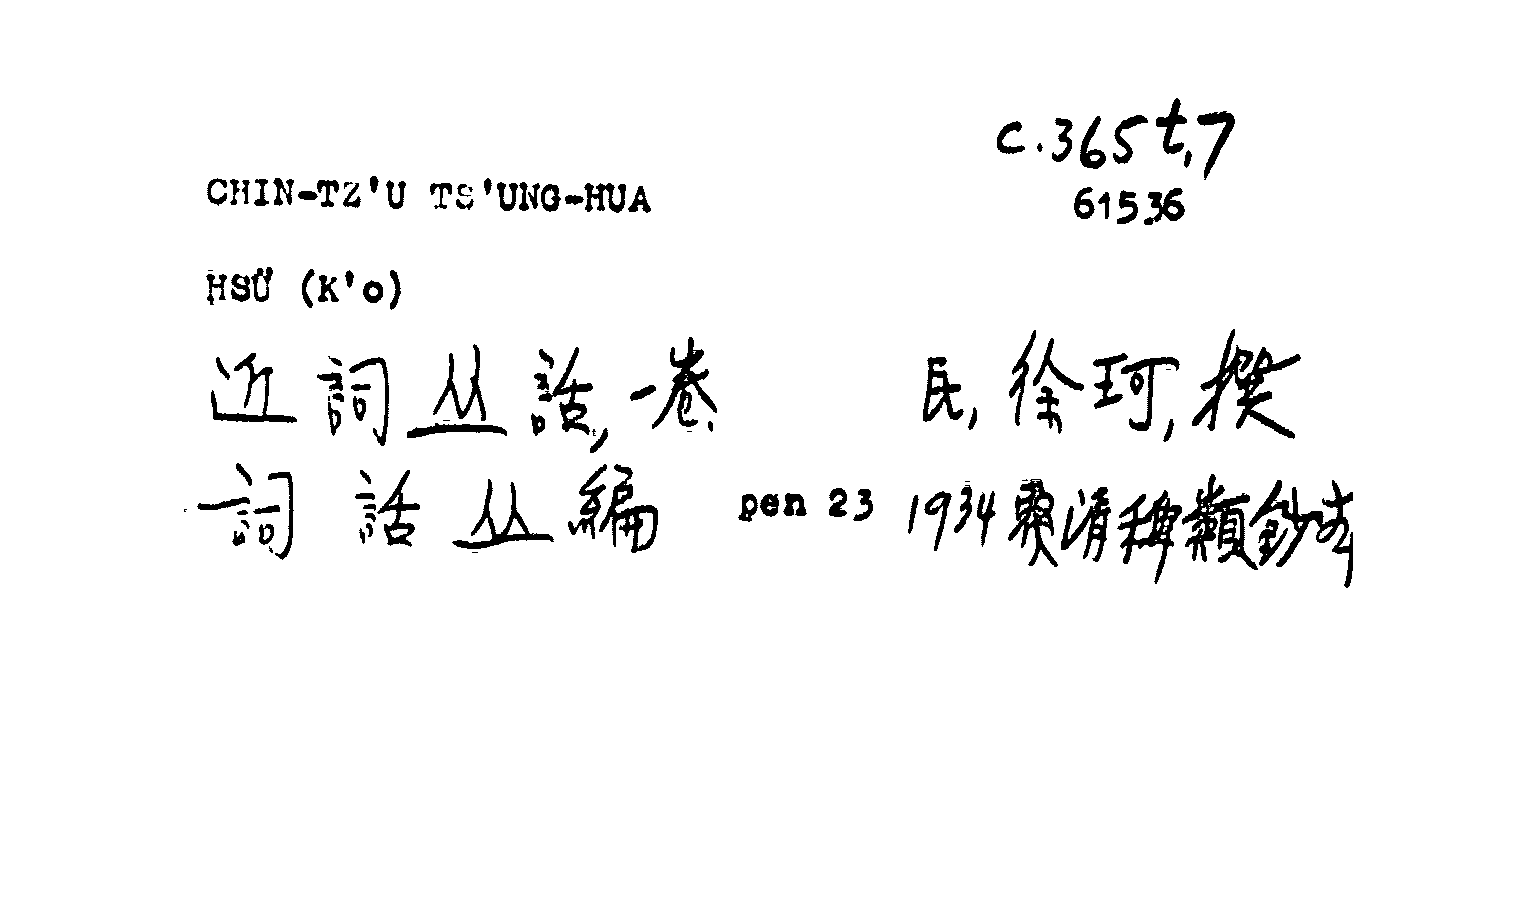 c.365 t.7
CHIN-TZ'U TS'UNG-HUA
61536
HSÜ (K'o)
近詞丛話, 一卷. 民, 徐珂, 撰
詞話丛編 pen 23 1934 覆清稗類鈔本